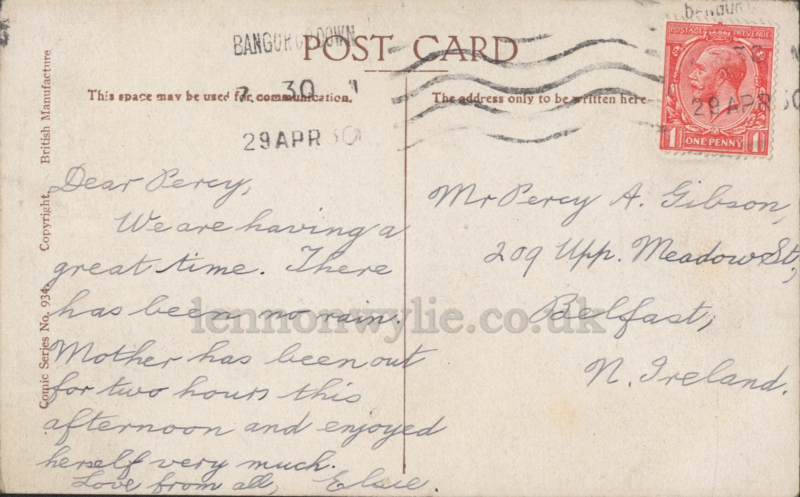 BANGOR CO DOWN
7 30
29 APR 30
POST CARD
This space may be used for communication.
The address only to be written here
POSTAGE REVENUE
ONE PENNY
29 APR 30
British Manufacture
Copyright.
Comic Series No. 934.
Dear Percy,
We are having a
great time. There
has been no rain.
Mother has been out
for two hours this
afternoon and enjoyed
herself very much.
Love from all, Elsie.
Mr Percy A. Gibson,
209 Upp. Meadow St,
Belfast,
N. Ireland.
lennonwylie.co.uk